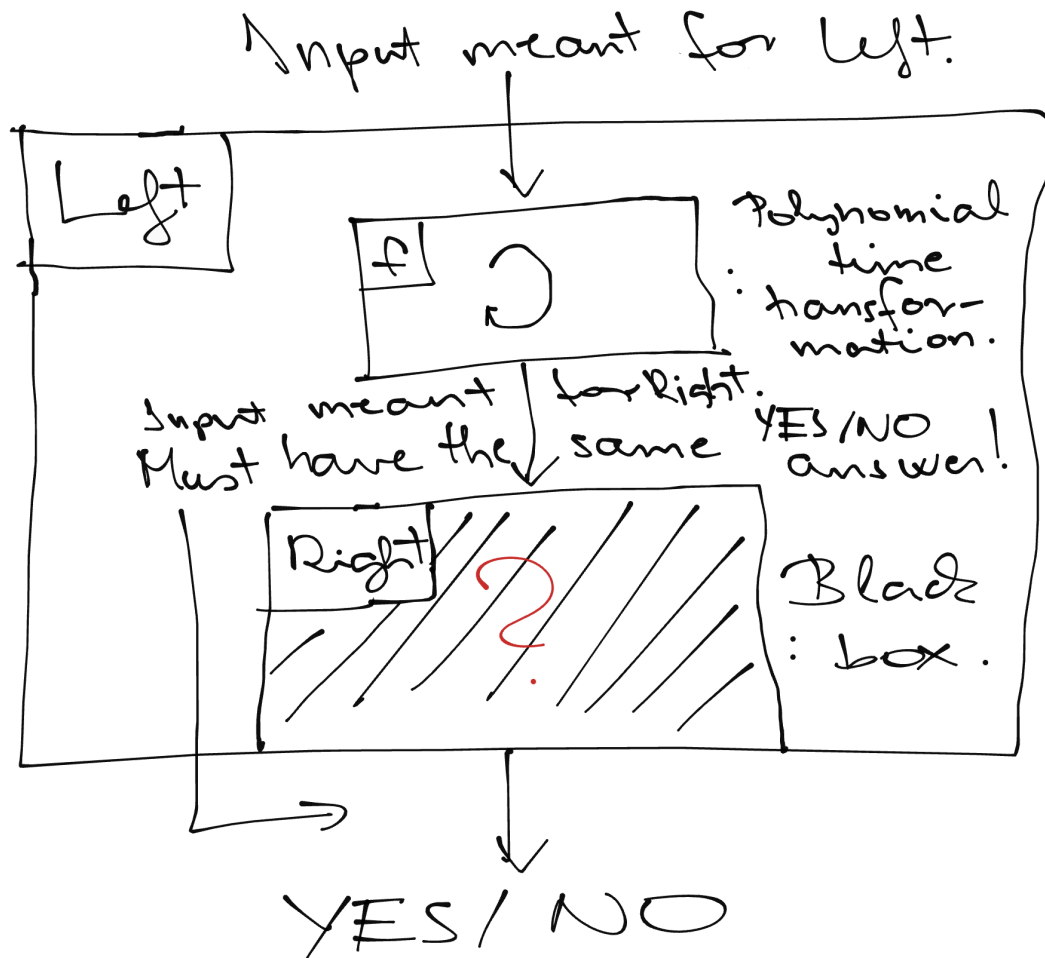 Input meant for Left.
Left
f
: Polynomial
time
transfor-
mation.
Input meant for Right.
Must have the same YES/NO
answer!
Right
?
Black
: box.
YES/NO